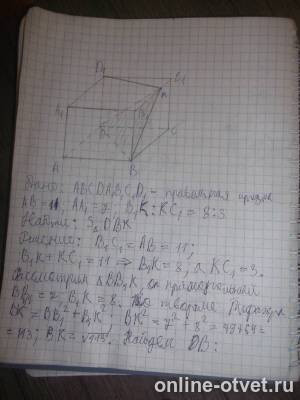 D₁
C₁
A₁
B₁
K
D
C
A
B
Дано: ABCDA₁B₁C₁D₁ – правильная призма
AB = 11, AA₁ = 7, B₁K : KC₁ = 8:3
Найти: S△DBK
Решение: B₁C₁ = AB = 11;
B₁K + KC₁ = 11 ⇒ B₁K = 8, а KC₁ = 3.
Рассмотрим △BB₁K, он прямоугольный
BB₁ = 7, B₁K = 8. По теореме Пифагора
BK² = BB₁² + B₁K²; BK² = 7² + 8² = 49 + 64 =
= 113; BK = √113. Найдем DB:
online-otvet.ru